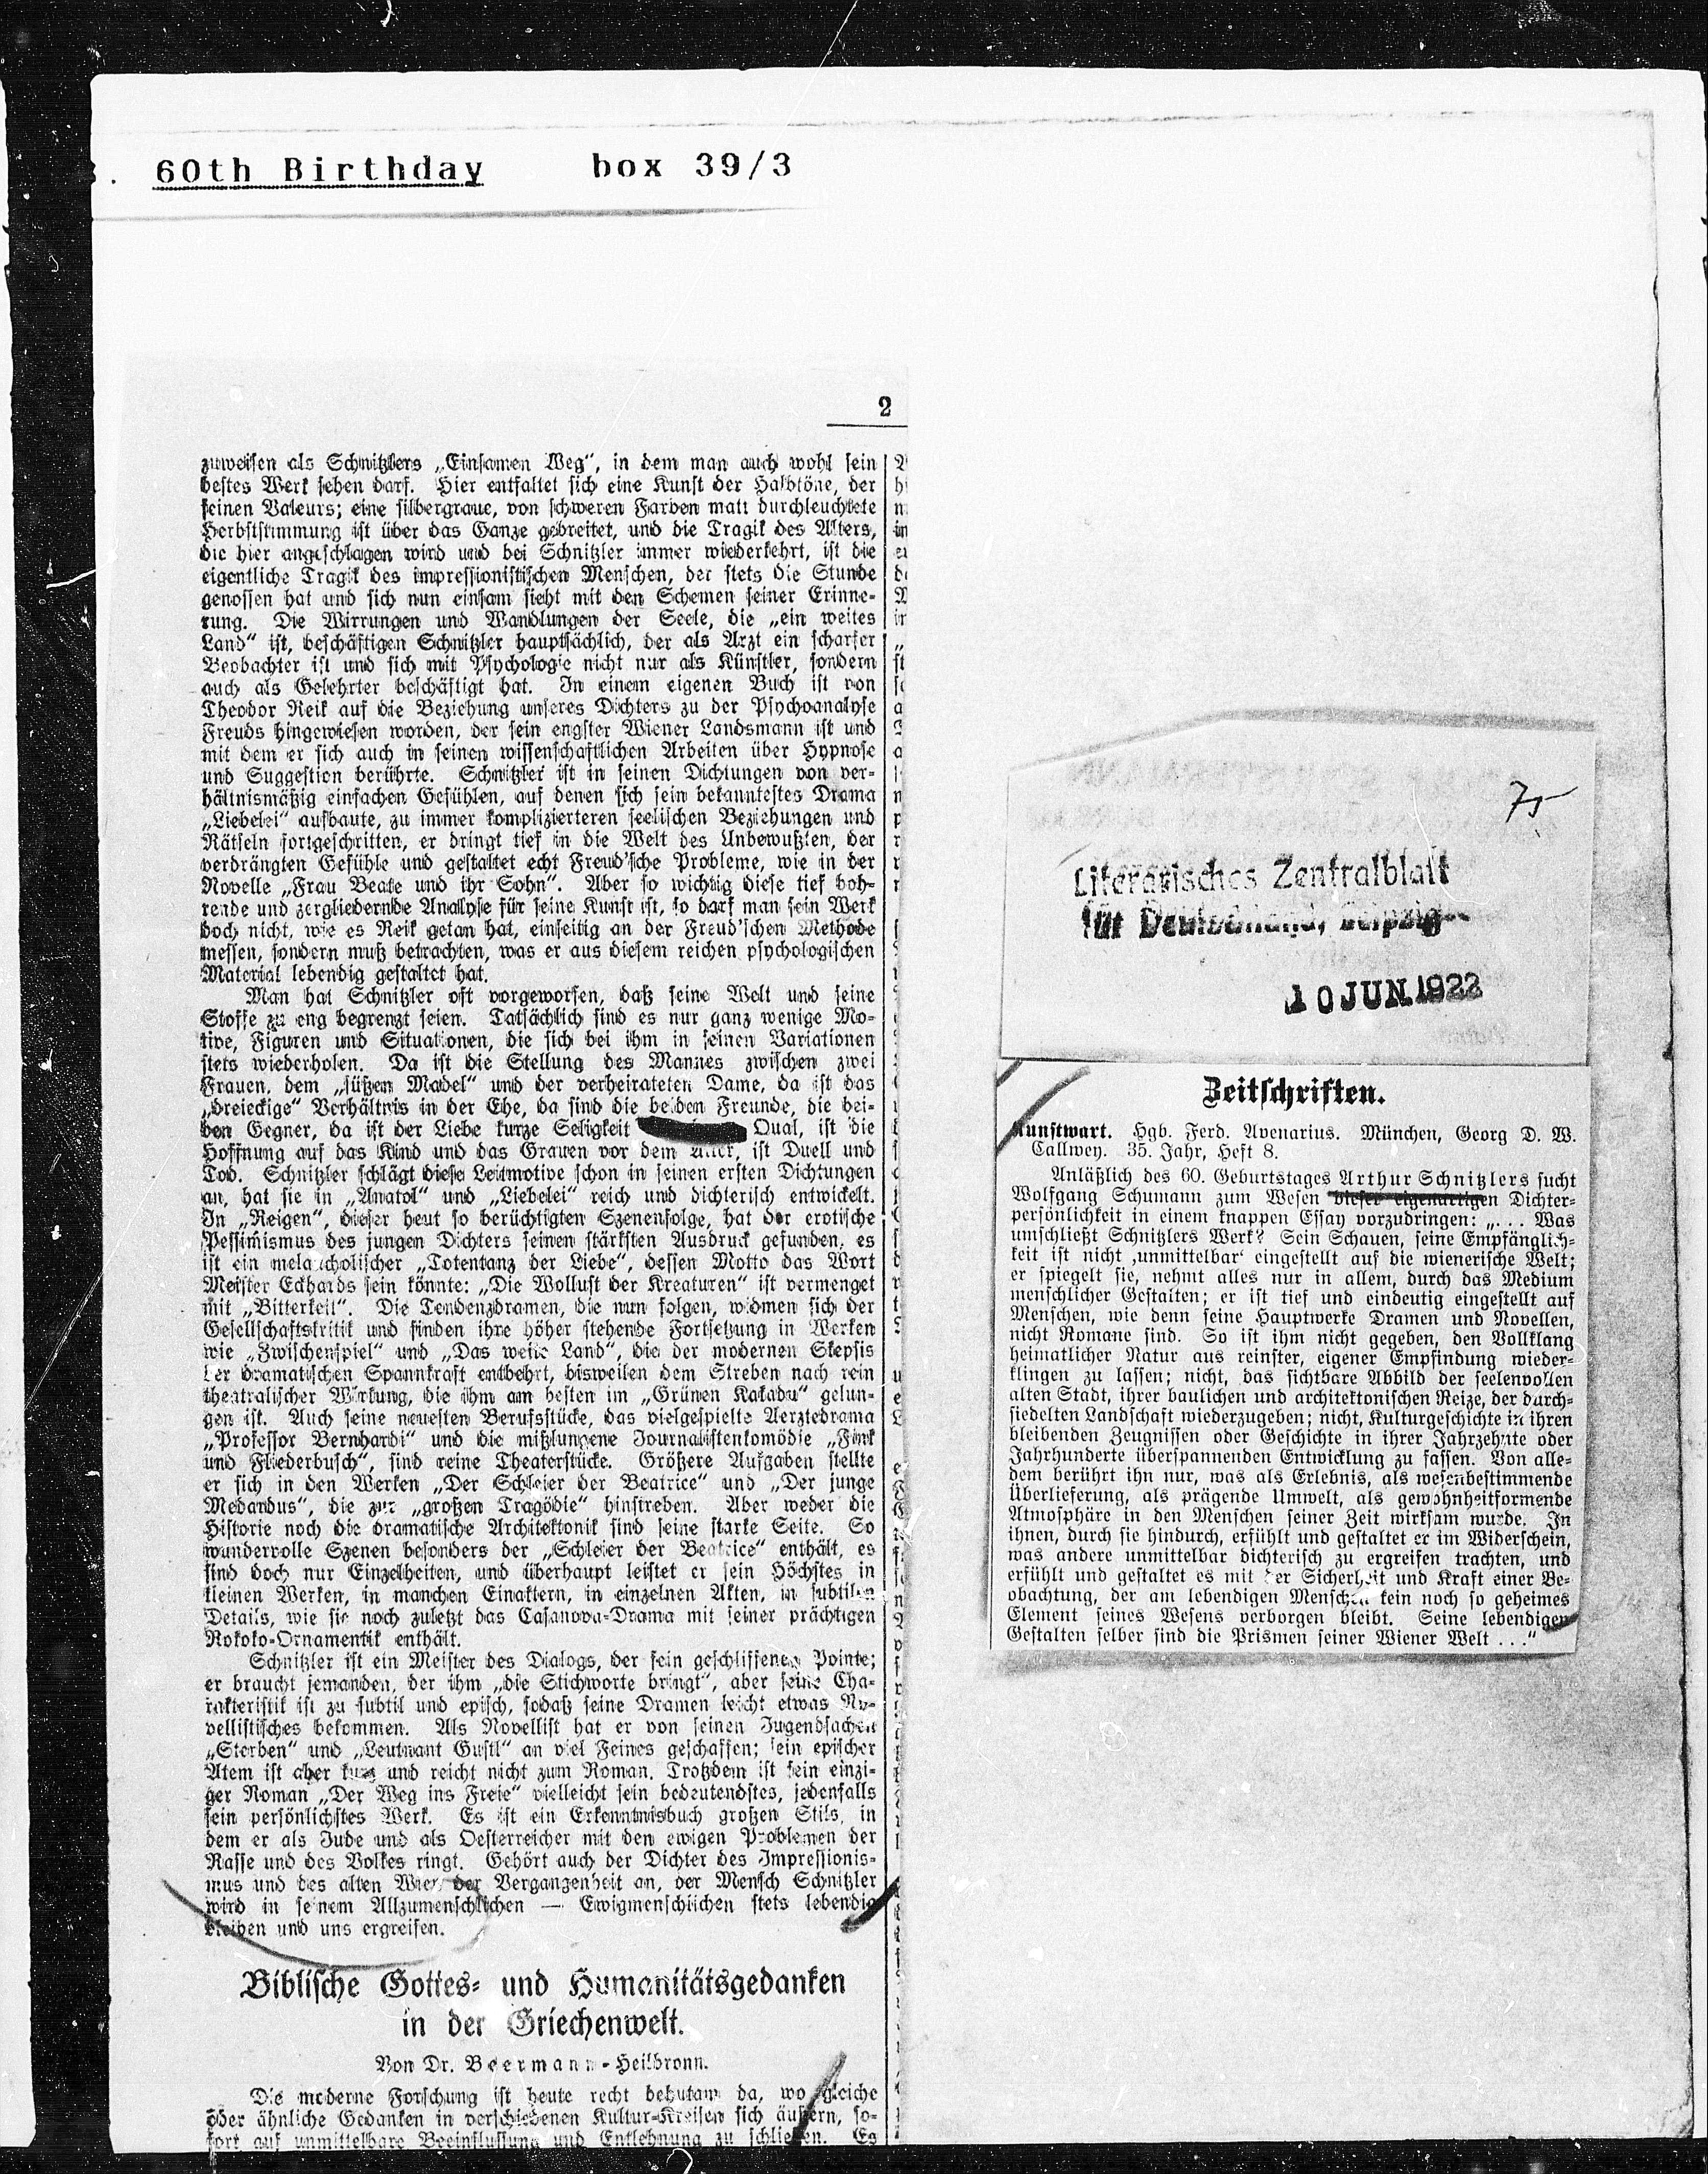 60th Birthday box 39/3
2
zuweisen als Schnitzlers „Einsamen Weg“, in dem man auch wohl sein
bestes Werk sehen darf. Hier entfaltet sich eine Kunst der Halbtöne, der
feinen Valeurs; eine silbergraue, von schweren Farben matt durchleuchtete
Herbststimmung ist über das Ganze gebreitet, und die Tragik des Alters,
die hier angeschlagen wird und bei Schnitzler immer wiederkehrt, ist die
eigentliche Tragik des impressionistischen Menschen, der stets die Stunde
genossen hat und sich nun einsam sieht mit den Schemen seiner Erinne-
rung. Die Wirrungen und Wandlungen der Seele, die „ein weites
Land“ ist, beschäftigen Schnitzler hauptsächlich, der als Arzt ein scharfer
Beobachter ist und sich mit Psychologie nicht nur als Künstler, sondern
auch als Gelehrter beschäftigt hat. In einem eigenen Buch ist von
Theodor Reik auf die Beziehung unseres Dichters zu der Psychoanalyse
Freuds hingewiesen worden, der sein engster Wiener Landsmann ist und
mit dem er sich auch in seinen wissenschaftlichen Arbeiten über Hypnose
und Suggestion berührte. Schnitzler ist in seinen Dichtungen von ver-
hältnismäßig einfachen Gefühlen, auf denen sich sein bekanntestes Drama
„Liebelei“ aufbaute, zu immer komplizierteren seelischen Beziehungen und
Rätseln fortgeschritten, er dringt tief in die Welt des Unbewußten, der
verdrängten Gefühle und gestaltet echt Freud'sche Probleme, wie in der
Novelle „Frau Beate und ihr Sohn“. Aber so wichtig diese tief boh-
rende und zergliedernde Analyse für seine Kunst ist, so darf man sein Werk
doch nicht, wie es Reik getan hat, einseitig an der Freud'schen Methode
messen, sondern muß betrachten, was er aus diesem reichen psychologischen
Material lebendig gestaltet hat.
Man hat Schnitzler oft vorgeworfen, daß seine Welt und seine
Stoffe zu eng begrenzt seien. Tatsächlich sind es nur ganz wenige Mo-
tive, Figuren und Situationen, die sich bei ihm in seinen Variationen
stets wiederholen. Da ist die Stellung des Mannes zwischen zwei
Frauen, dem „süßen Madel“ und der verheirateten Dame, da ist das
„dreieckige“ Verhältnis in der Ehe, da sind die beiden Freunde, die bei-
den Gegner, da ist der Liebe kurze Seligkeit Qual, ist die
Hoffnung auf das Kind und das Grauen vor dem Alter, ist Duell und
Tod. Schnitzler schlägt diese Leitmotive schon in seinen ersten Dichtungen
an, hat sie in „Anatol“ und „Liebelei“ reich und dichterisch entwickelt.
In „Reigen“, dieser heut so berüchtigten Szenenfolge, hat der erotische
Pessimismus des jungen Dichters seinen stärksten Ausdruck gefunden; es
ist ein melancholischer „Totentanz der Liebe“, dessen Motto das Wort
Meister Eckhards sein könnte: „Die Wollust der Kreaturen“ ist vermenget
mit „Bitterkeit“. Die Tendenzdramen, die nun folgen, widmen sich der
Gesellschaftskritik und finden ihre höher stehende Fortsetzung in Werken
wie „Zwischenspiel“ und „Das weite Land“, die der modernen Skepsis
der dramatischen Spannkraft entbehrt, bisweilen dem Streben nach rein
theatralischer Wirkung, die ihm am besten im „Grünen Kakadu“ gelun-
gen ist. Auch seine neuesten Berufsstücke, das vielgespielte Aerztedrama
„Professor Bernhardi“ und die mißlungene Journalistenkomödie „Fink
und Fliederbusch“, sind reine Theaterstücke. Größere Aufgaben stellte
er sich in den Werken „Der Schleier der Beatrice“ und „Der junge
Medardus“, die zur „großen Tragödie“ hinstreben. Aber weder die
Historie noch die dramatische Architektonik sind seine starke Seite. So
wundervolle Szenen besonders der „Schleier der Beatrice“ enthält, es
sind doch nur Einzelheiten, und überhaupt leistet er sein Höchstes in
kleinen Werken, in manchen Einaktern, in einzelnen Akten, in subtilen
Details, wie sie noch zuletzt das Casanova-Drama mit seiner prächtigen
Rokoko-Ornamentik enthält.
Schnitzler ist ein Meister des Dialogs, der fein geschliffenen Pointe;
er braucht jemanden, der ihm „die Stichworte bringt“, aber seine Cha-
rakteristik ist zu subtil und episch, sodaß seine Dramen leicht etwas No-
vellistisches bekommen. Als Novellist hat er von seinen Jugendsachen
„Sterben“ und „Leutnant Gustl“ an viel Feines geschaffen; sein epischer
Atem ist aber kurz und reicht nicht zum Roman. Trotzdem ist sein einzi-
ger Roman „Der Weg ins Freie“ vielleicht sein bedeutendstes, jedenfalls
sein persönlichstes Werk. Es ist ein Erkenntnisbuch großen Stils, in
dem er als Jude und als Oesterreicher mit den ewigen Problemen der
Rasse und des Volkes ringt. Gehört auch der Dichter des Impressionis-
mus und des alten Wien der Vergangenheit an, der Mensch Schnitzler
wird in seinem Allzumenschlichen — Ewigmenschlichen stets lebendig
bleiben und uns ergreifen.
Biblische Gottes- und Humanitätsgedanken
in der Griechenwelt.
Von Dr. Beermann-Heilbronn.
Die moderne Forschung ist heute recht behutsam da, wo gleiche
oder ähnliche Gedanken in verschiedenen Kultur-Kreisen sich äußern, so-
fort auf unmittelbare Beeinflussung und Entlehnung zu schließen. Es
75
Literarisches Zentralblatt
für Deutschland, Leipzig
10 JUN. 1922
Zeitschriften.
Kunstwart. Hgb. Ferd. Avenarius. München, Georg D. W.
Callwey. 35. Jahr, Heft 8.
Anläßlich des 60. Geburtstages Arthur Schnitzlers sucht
Wolfgang Schumann zum Wesen dieser eigenartigen Dichter-
persönlichkeit in einem knappen Essay vorzudringen: „... Was
umschließt Schnitzlers Werk? Sein Schauen, seine Empfänglich-
keit ist nicht ‚unmittelbar‘ eingestellt auf die wienerische Welt;
er spiegelt sie, nehmt alles nur in allem, durch das Medium
menschlicher Gestalten; er ist tief und eindeutig eingestellt auf
Menschen, wie denn seine Hauptwerke Dramen und Novellen,
nicht Romane sind. So ist ihm nicht gegeben, den Vollklang
heimatlicher Natur aus reinster, eigener Empfindung wieder-
klingen zu lassen; nicht, das sichtbare Abbild der seelenvollen
alten Stadt, ihrer baulichen und architektonischen Reize, der durch-
siedelten Landschaft wiederzugeben; nicht, Kulturgeschichte in ihren
bleibenden Zeugnissen oder Geschichte in ihrer Jahrzehnte oder
Jahrhunderte überspannenden Entwicklung zu fassen. Von alle-
dem berührt ihn nur, was als Erlebnis, als wesenbestimmende
Überlieferung, als prägende Umwelt, als gewohnheitformende
Atmosphäre in den Menschen seiner Zeit wirksam wurde. In
ihnen, durch sie hindurch, erfühlt und gestaltet er im Widerschein,
was andere unmittelbar dichterisch zu ergreifen trachten, und
erfühlt und gestaltet es mit der Sicherheit und Kraft einer Be-
obachtung, der am lebendigen Menschen kein noch so geheimes
Element seines Wesens verborgen bleibt. Seine lebendigen
Gestalten selber sind die Prismen seiner Wiener Welt ...“